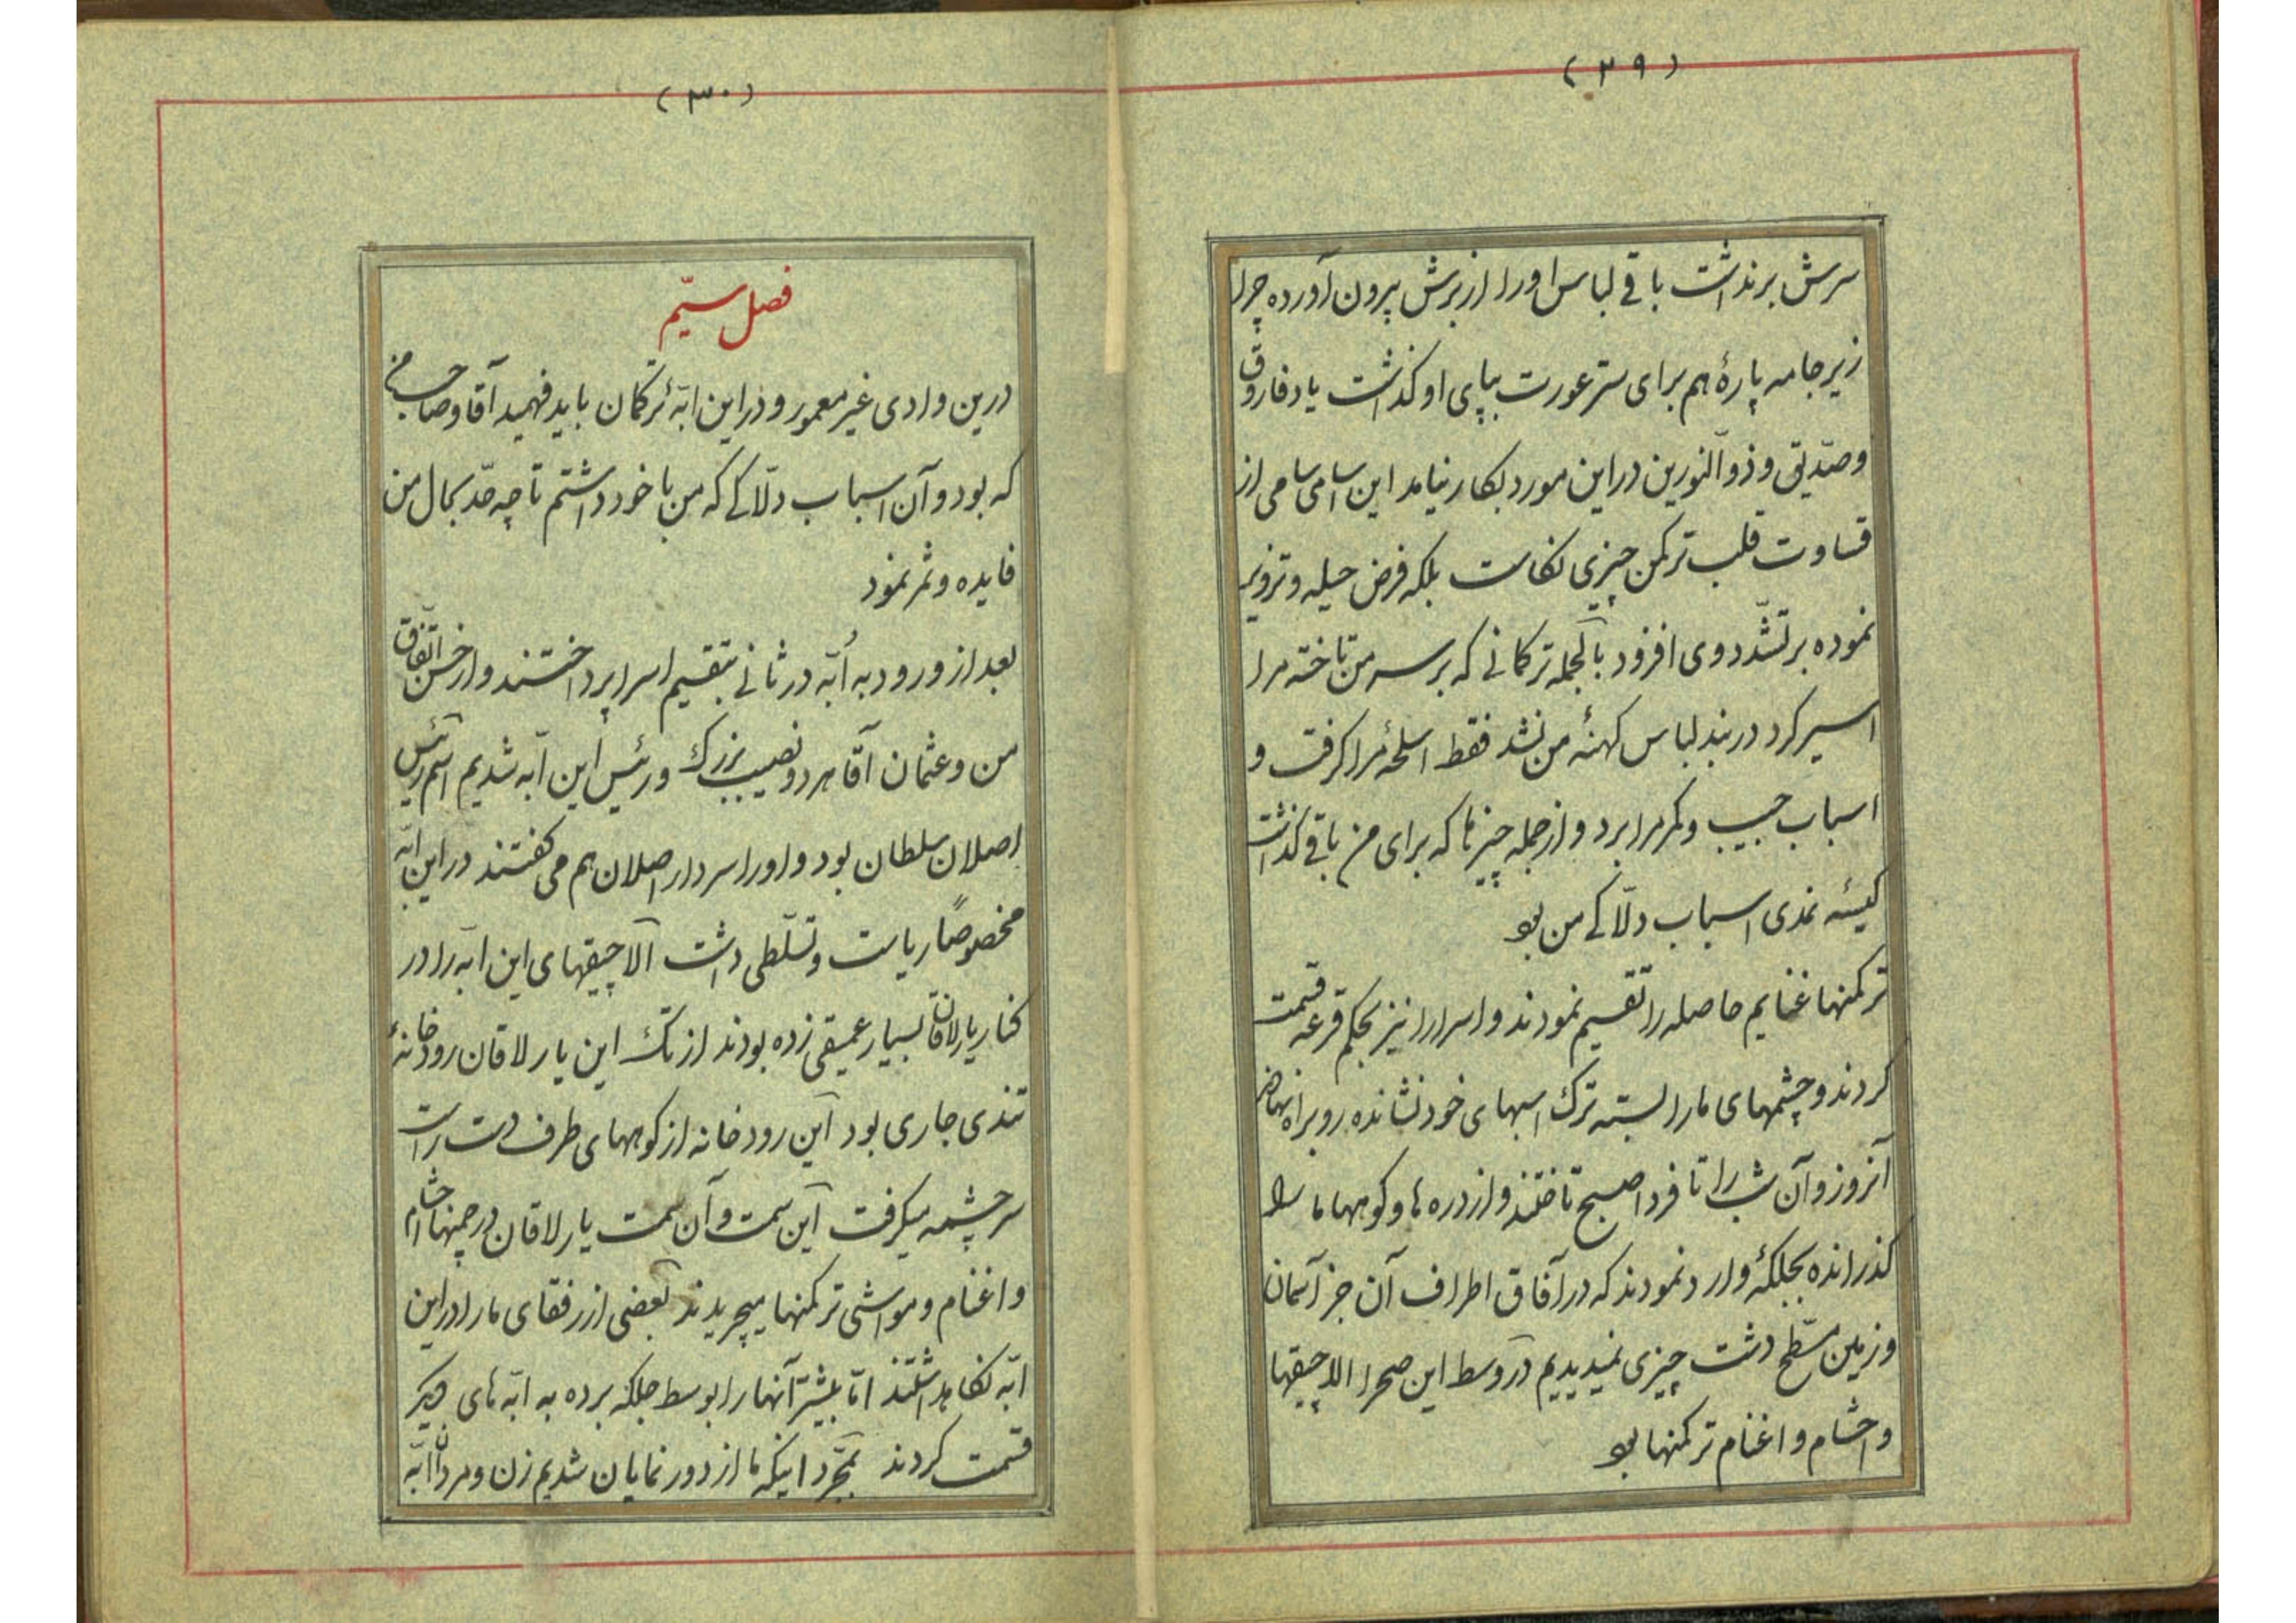 (۲۹)
سرش برنداشت باقی لباس او را از برش بیرون آورده جز
زیر جامه پارهٔ هم برای ستر عورت بپای او نگذاشت یا فاروق
و صدّیق و ذو النورین در این مورد بکار نیامد این اسامی سامی از
قساوت قلب ترکمن چیزی نکاست بلکه فرض حیله و تزویر
نموده بر تشدّد وی افزود بالجمله ترکمانی که بر سر من تاخته مرا
اسیر کرد در بند لباس کهنهٔ من نشد فقط اسلحهٔ مرا کرفت و
اسباب جیب و کمر مرا برد و از جمله چیزها که برای من باقی کذاشت
کیسهٔ نمدی اسباب دلّاکی من بود
ترکمنها غنایم حاصله را تقسیم نمودند و اسرا را نیز بحکم قرعه قسمت
کردند و چشمهای ما را بسته ترک اسبهای خود نشانده رو براه نهادند
آنروز و آن شب را تا فردا صبح تاختند و از دره ها و کوهها ما را
کذرانده بجلکهٔ وارد نمودند که در آفاق اطراف آن جز آسمان
و زمین مسطّح دشت چیزی نمیدیدیم در وسط این صحرا الاچیقها
و احشام و اغنام ترکمنها بود
(۳۰)
فصل سیّم
درین وادی غیر معمور و در این ابّهٔ ترکمان باید فهمید آقا و صاحب من
که بود و آن اسباب دلّاکی که من با خود داشتم تا چه حدّ بحال من
فایده و ثمر نمود
بعد از ورود به اُبّه در ثانی بتقسیم اسرا پرداختند و از حسن اتّفاق
من و عثمان آقا هر دو نصیب بزرک و رئیس این ابّه شدیم اسم رئیس
اصلان سلطان بود و او را سردار اصلان هم می کفتند در این ابّه
مخصوصاً ریاست و تسلّطی داشت آلاچیقهای این ابّه را در
کنار یارلاقان بسیار عمیقی زده بودند از تک این یارلاقان رودخانهٔ
تندی جاری بود این رودخانه از کوههای طرف دست راست
سرچشمه میکرفت این سمت و آن سمت یارلاقان در چمنها احشام
و اغنام و مواشی ترکمنها میچریدند بعضی از رفقای ما را در این
ابّه نکاهداشتند امّا بیشتر آنها را بوسط جلکه برده به ابّه های دیکر
قسمت کردند بمجرّد اینکه ما از دور نمایان شدیم زن و مردان ابّه